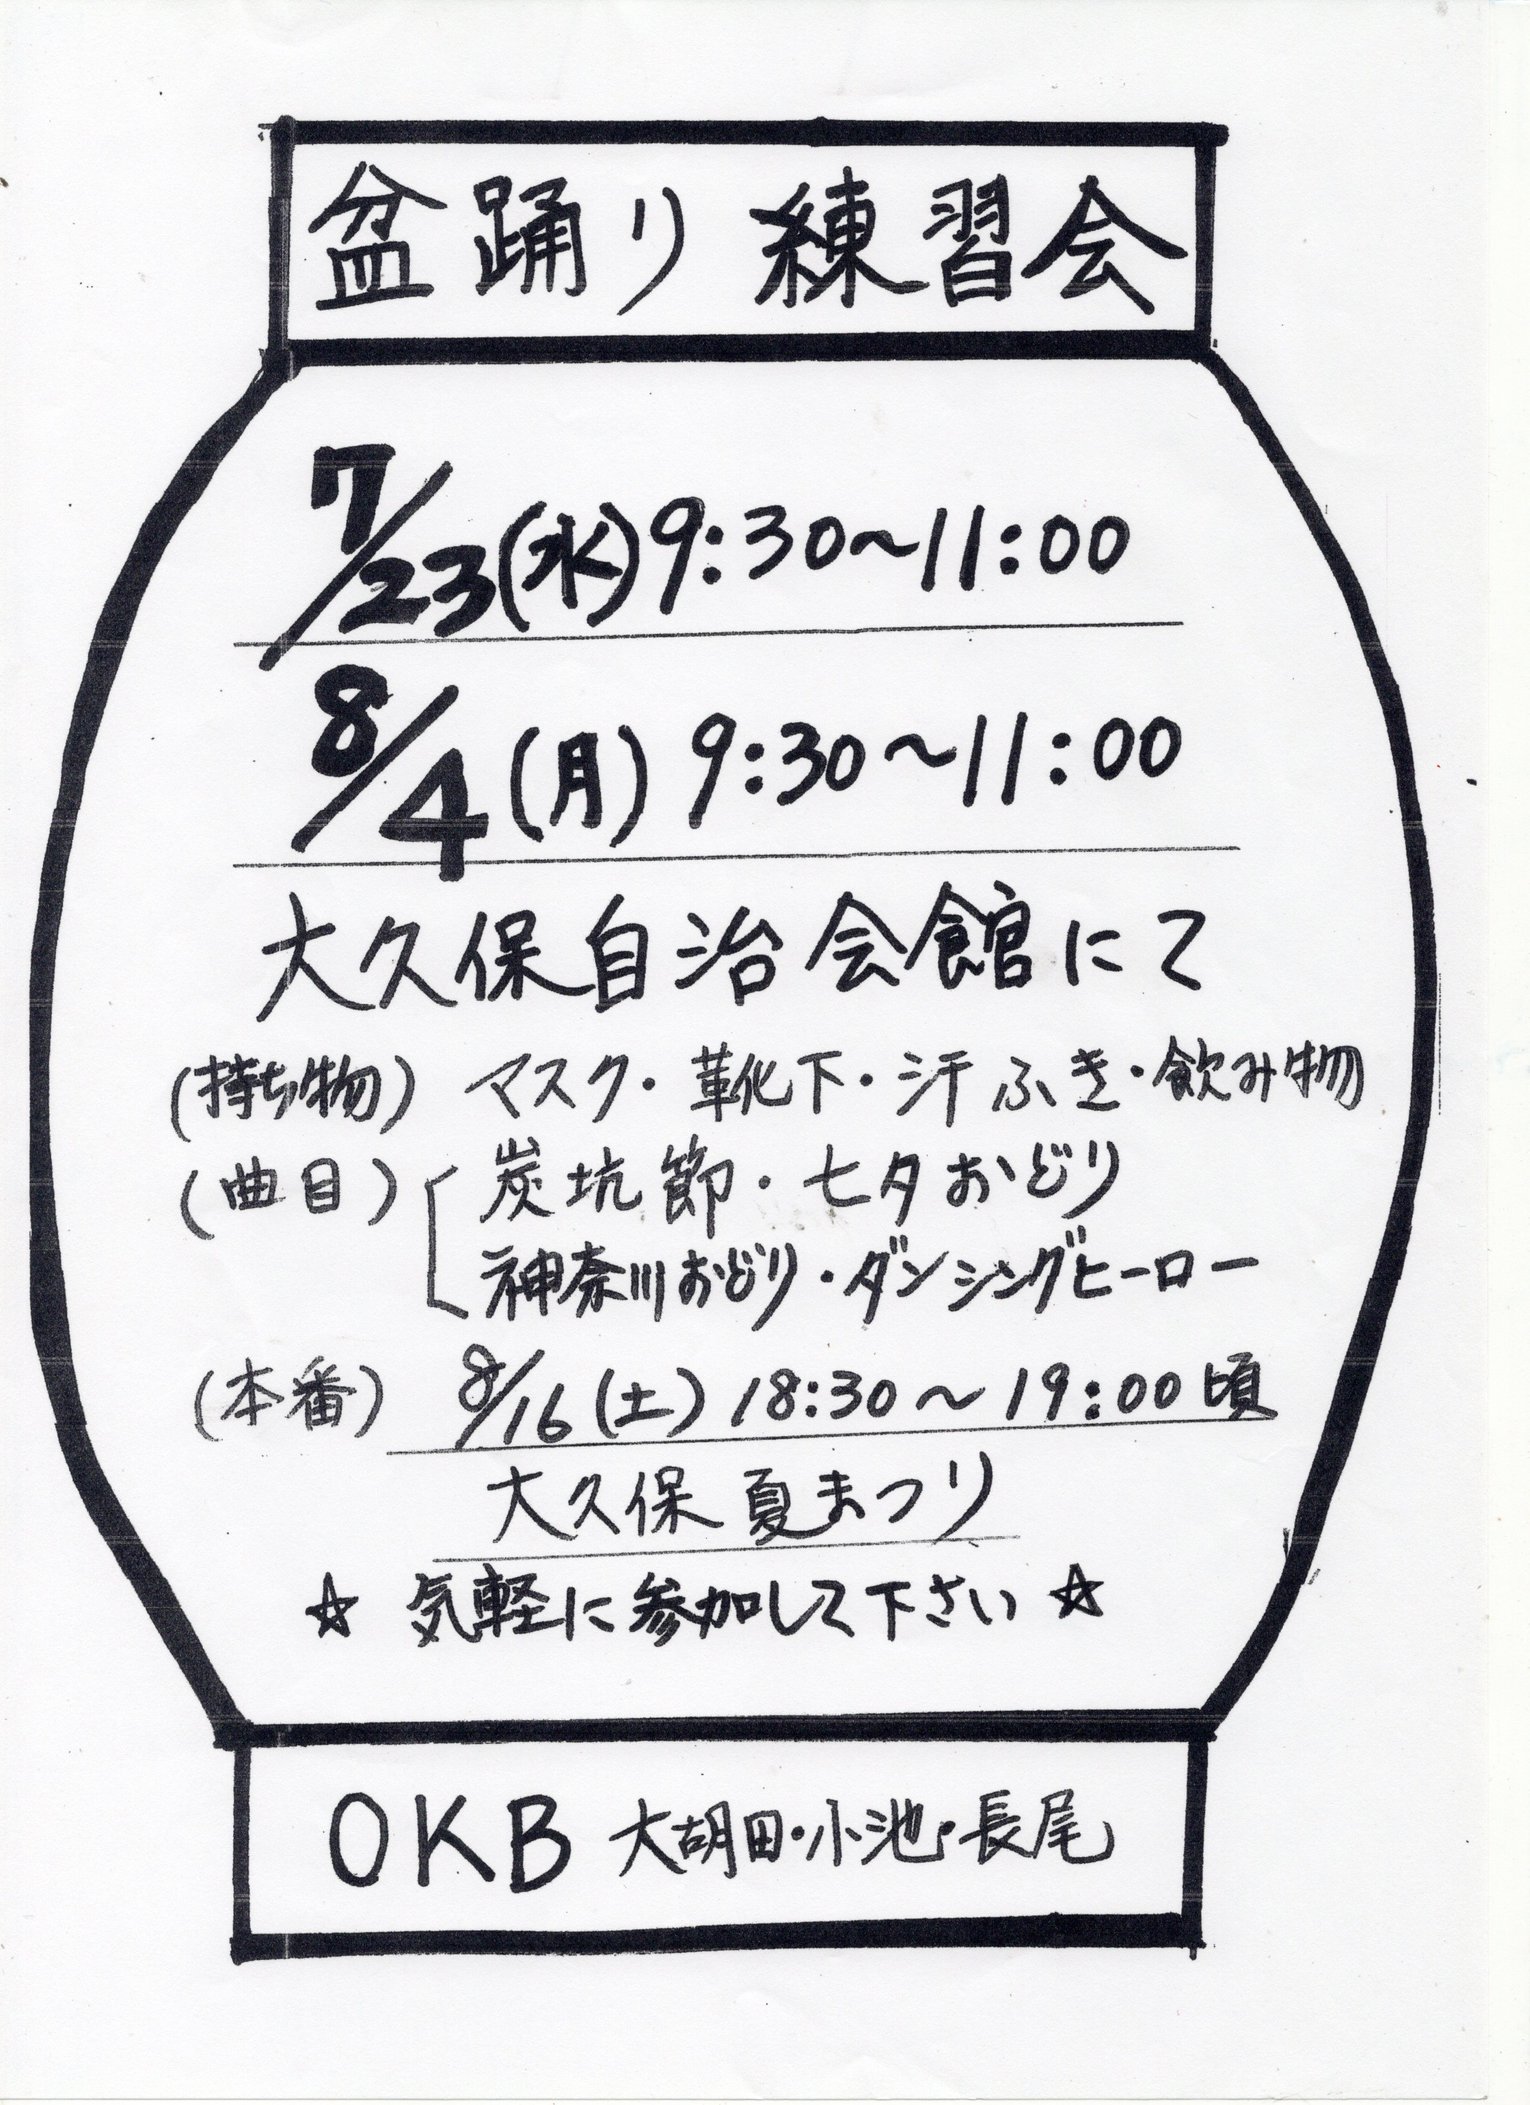 盆踊り練習会
7/23(水)9:30～11:00
8/4(月)9:30～11:00
大久保自治会館にて
(持ち物) マスク・靴下・汗ふき・飲み物
(曲目) 炭坑節・七夕おどり
神奈川おどり・ダンシングヒーロー
(本番) 8/16(土)18:30～19:00頃
大久保夏まつり
☆ 気軽に参加して下さい ☆
OKB 大胡田・小池・長尾